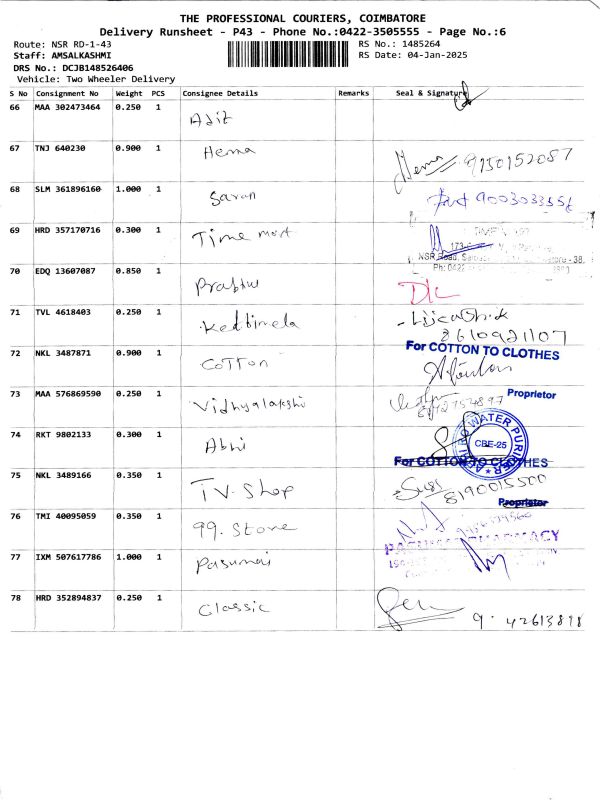 THE PROFESSIONAL COURIERS, COIMBATORE
Delivery Runsheet - P43 - Phone No.:0422-3505555 - Page No.:6
Route: NSR RD-1-43 RS No.: 1485264
Staff: AMSALKASHMI RS Date: 04-Jan-2025
DRS No.: DCJB148526406
Vehicle: Two Wheeler Delivery
S No Consignment No Weight PCS Consignee Details Remarks Seal & Signature
66 MAA 302473464 0.250 1
67 TNJ 640230 0.900 1 Hema Hema 9150152087
68 SLM 361896160 1.000 1 Saran 9003033556
69 HRD 357170716 0.300 1 Time mart
NSR Road,
70 EDQ 13607087 0.850 1 Prabhu
71 TVL 4618403 0.250 1
8610921107
72 NKL 3487871 0.900 1 Cotton For COTTON TO CLOTHES
Proprietor
73 MAA 576869590 0.250 1 Vidhyalakshi
74 RKT 9802133 0.300 1 Abhi WATER CBE-25
For COTTON TO CLOTHES
75 NKL 3489166 0.350 1 TV. Shop 8190015500
Proprietor
76 TMI 40095059 0.350 1 99. Store
77 IXM 507617786 1.000 1 Pasumai PHARMACY
78 HRD 352894837 0.250 1 Classic